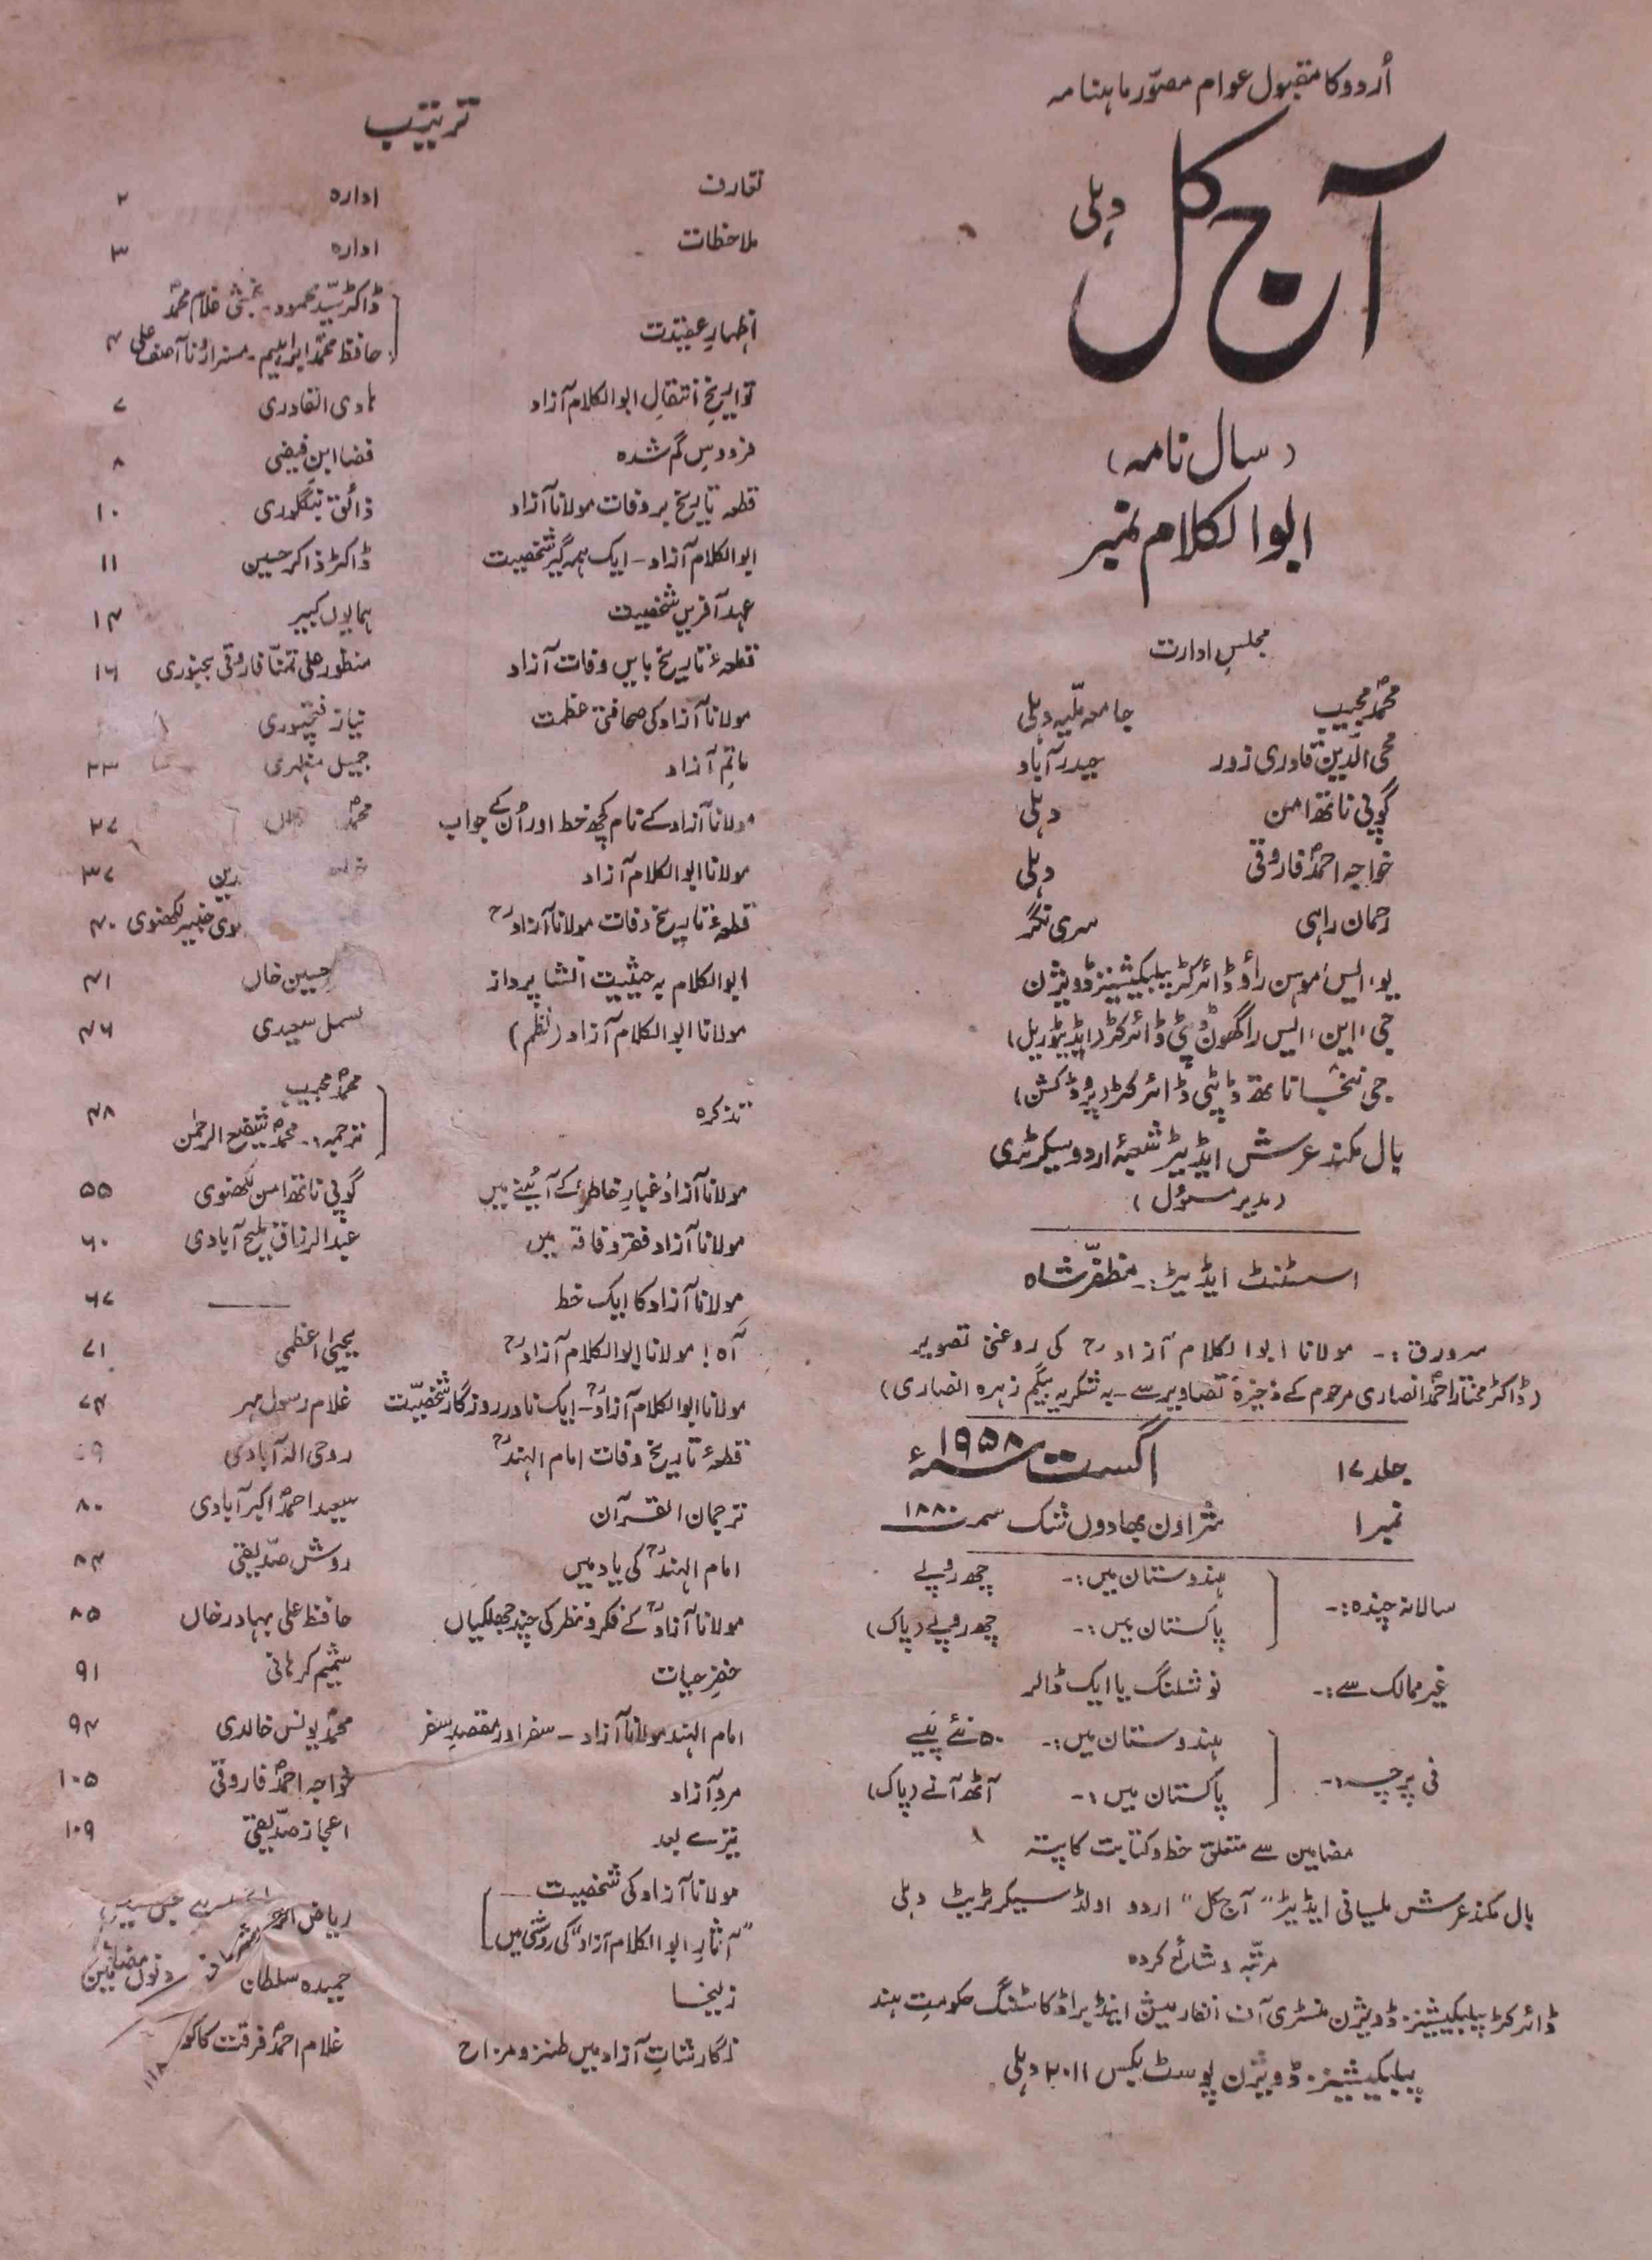 اُردو کا مقبول عوام مصوّر ماہنامہ
آج کل
دہلی
(سال نامہ)
ابوالکلام نمبر
مجلسِ ادارت
محمد مجیب جامعہ ملّیہ دہلی
محی الدّین قادری زور حیدرآباد
گوپی ناتھ امن دہلی
خواجہ احمد فاروقی دہلی
رحمان راہی سری نگر
یو، ایس، موہن راؤ ڈائرکٹر پبلیکیشنز ڈویژن
جی، این، ایس راگھون ڈپٹی ڈائرکٹر (ایڈیٹوریل)
جی ننجا ناتھ ڈپٹی ڈائرکٹر (پروڈکشن)
بال مکند عرش ایڈیٹر شعبۂ اردو سیکرٹری
(مدیر مسئول)
اسسٹنٹ ایڈیٹر:۔ مظفّر شاہ
سرورق:۔ مولانا ابوالکلام آزادؒ کی روغنی تصویر
(ڈاکٹر مختار احمد انصاری مرحوم کے ذخیرۂ تصاویر سے۔ بہ شکریہ بیگم زہرہ انصاری)
جلد ۱۷ اگست ۱۹۵۸ء
نمبر ۱ شراون بھادوں شک سمت ۱۸۸۰
سالانہ چندہ:۔ ہندوستان میں:۔ چھ روپے
پاکستان میں:۔ چھ روپے (پاک)
غیر ممالک سے:۔ نو شلنگ یا ایک ڈالر
فی پرچہ:۔ ہندوستان میں:۔ ۵۰ نئے پیسے
پاکستان میں:۔ آٹھ آنے (پاک)
مضامین سے متعلق خط و کتابت کا پتہ
بال مکند عرش ملسیانی ایڈیٹر "آج کل" اردو اولڈ سیکرٹریٹ دہلی
مرتّبہ و شائع کردہ
ڈائرکٹر پبلیکیشنز ڈویژن منسٹری آف انفارمیشن اینڈ براڈ کاسٹنگ حکومتِ ہند
پبلیکیشنز ڈویژن پوسٹ بکس ۲۰۱۱ دہلی
ترتیب
تعارف ادارہ ۲
ملاحظات ادارہ ۳
اظہارِ عقیدت ڈاکٹر سیّد محمود۔ بخشی غلام محمد
حافظ محمد ابراہیم۔ مسز ارونا آصف علی ۴
تواریخِ انتقالِ ابوالکلام آزاد ہادی القادری ۷
فردوسِ گم شدہ فضا ابن فیضی ۸
قطعہ تاریخ بر وفات مولانا آزاد ذائق بنگلوری ۱۰
ابوالکلام آزاد۔ ایک ہمہ گیر شخصیت ڈاکٹر ذاکر حسین ۱۱
عہد آفریں شخصیت ہمایوں کبیر ۱۴
قطعۂ تاریخ بایں وفات آزاد منظور علی تمنّا فاروقی بجنوری ۱۶
مولانا آزاد کی صحافتی عظمت نیاز فتحپوری
ماتمِ آزاد جمیل مظہری ۲۳
مولانا آزاد کے نام کچھ خط اور اُن کے جواب محمد ۲۷
مولانا ابوالکلام آزاد ۳۷
قطعۂ تاریخِ وفات مولانا آزادؒ لکھنوی ۴۰
ابوالکلام بہ حیثیت انشا پرداز حسین خاں ۴۱
مولانا ابوالکلام آزاد (نظم) بسمل سعیدی ۴۶
تذکرہ محمد مجیب
ترجمہ:۔ محمد شفیع الرحمٰن ۴۸
مولانا آزاد غبارِ خاطر کے آئینے میں گوپی ناتھ امن لکھنوی ۵۵
مولانا آزاد فقر و فاقہ میں عبدالرزاق ملیح آبادی ۶۰
مولانا آزاد کا ایک خط ——— ۶۷
آہ! مولانا ابوالکلام آزادؒ یحییٰ اعظمی ۷۱
مولانا ابوالکلام آزادؒ۔ ایک نادرِ روزگار شخصیّت غلام رسول مہر ۷۴
قطعۂ تاریخ وفات امام الہندؒ روحی الہ آبادی ۷۹
ترجمان القرآن سعید احمد اکبر آبادی ۸۰
امام الہندؒ کی یاد میں روش صدّیقی ۸۴
مولانا آزادؒ کے فکر و نظر کی چند جھلکیاں حافظ علی بہادر خاں ۸۵
خضرِ حیات شمیم کرہانی ۹۱
امام الہند مولانا آزاد۔ سفر اور مقصدِ سفر محمد یونس خالدی ۹۴
مردِ آزاد خواجہ احمد فاروقی ۱۰۵
تیرے بعد اعجاز صدّیقی ۱۰۹
مولانا آزاد کی شخصیت
"آثارِ ابوالکلام آزاد" کی روشنی میں ریاض الرحمٰن
زلیخا حمیدہ سلطان
نگارشاتِ آزاد میں طنز و مزاح غلام احمد فرقت کاکوروی ۱۱۸